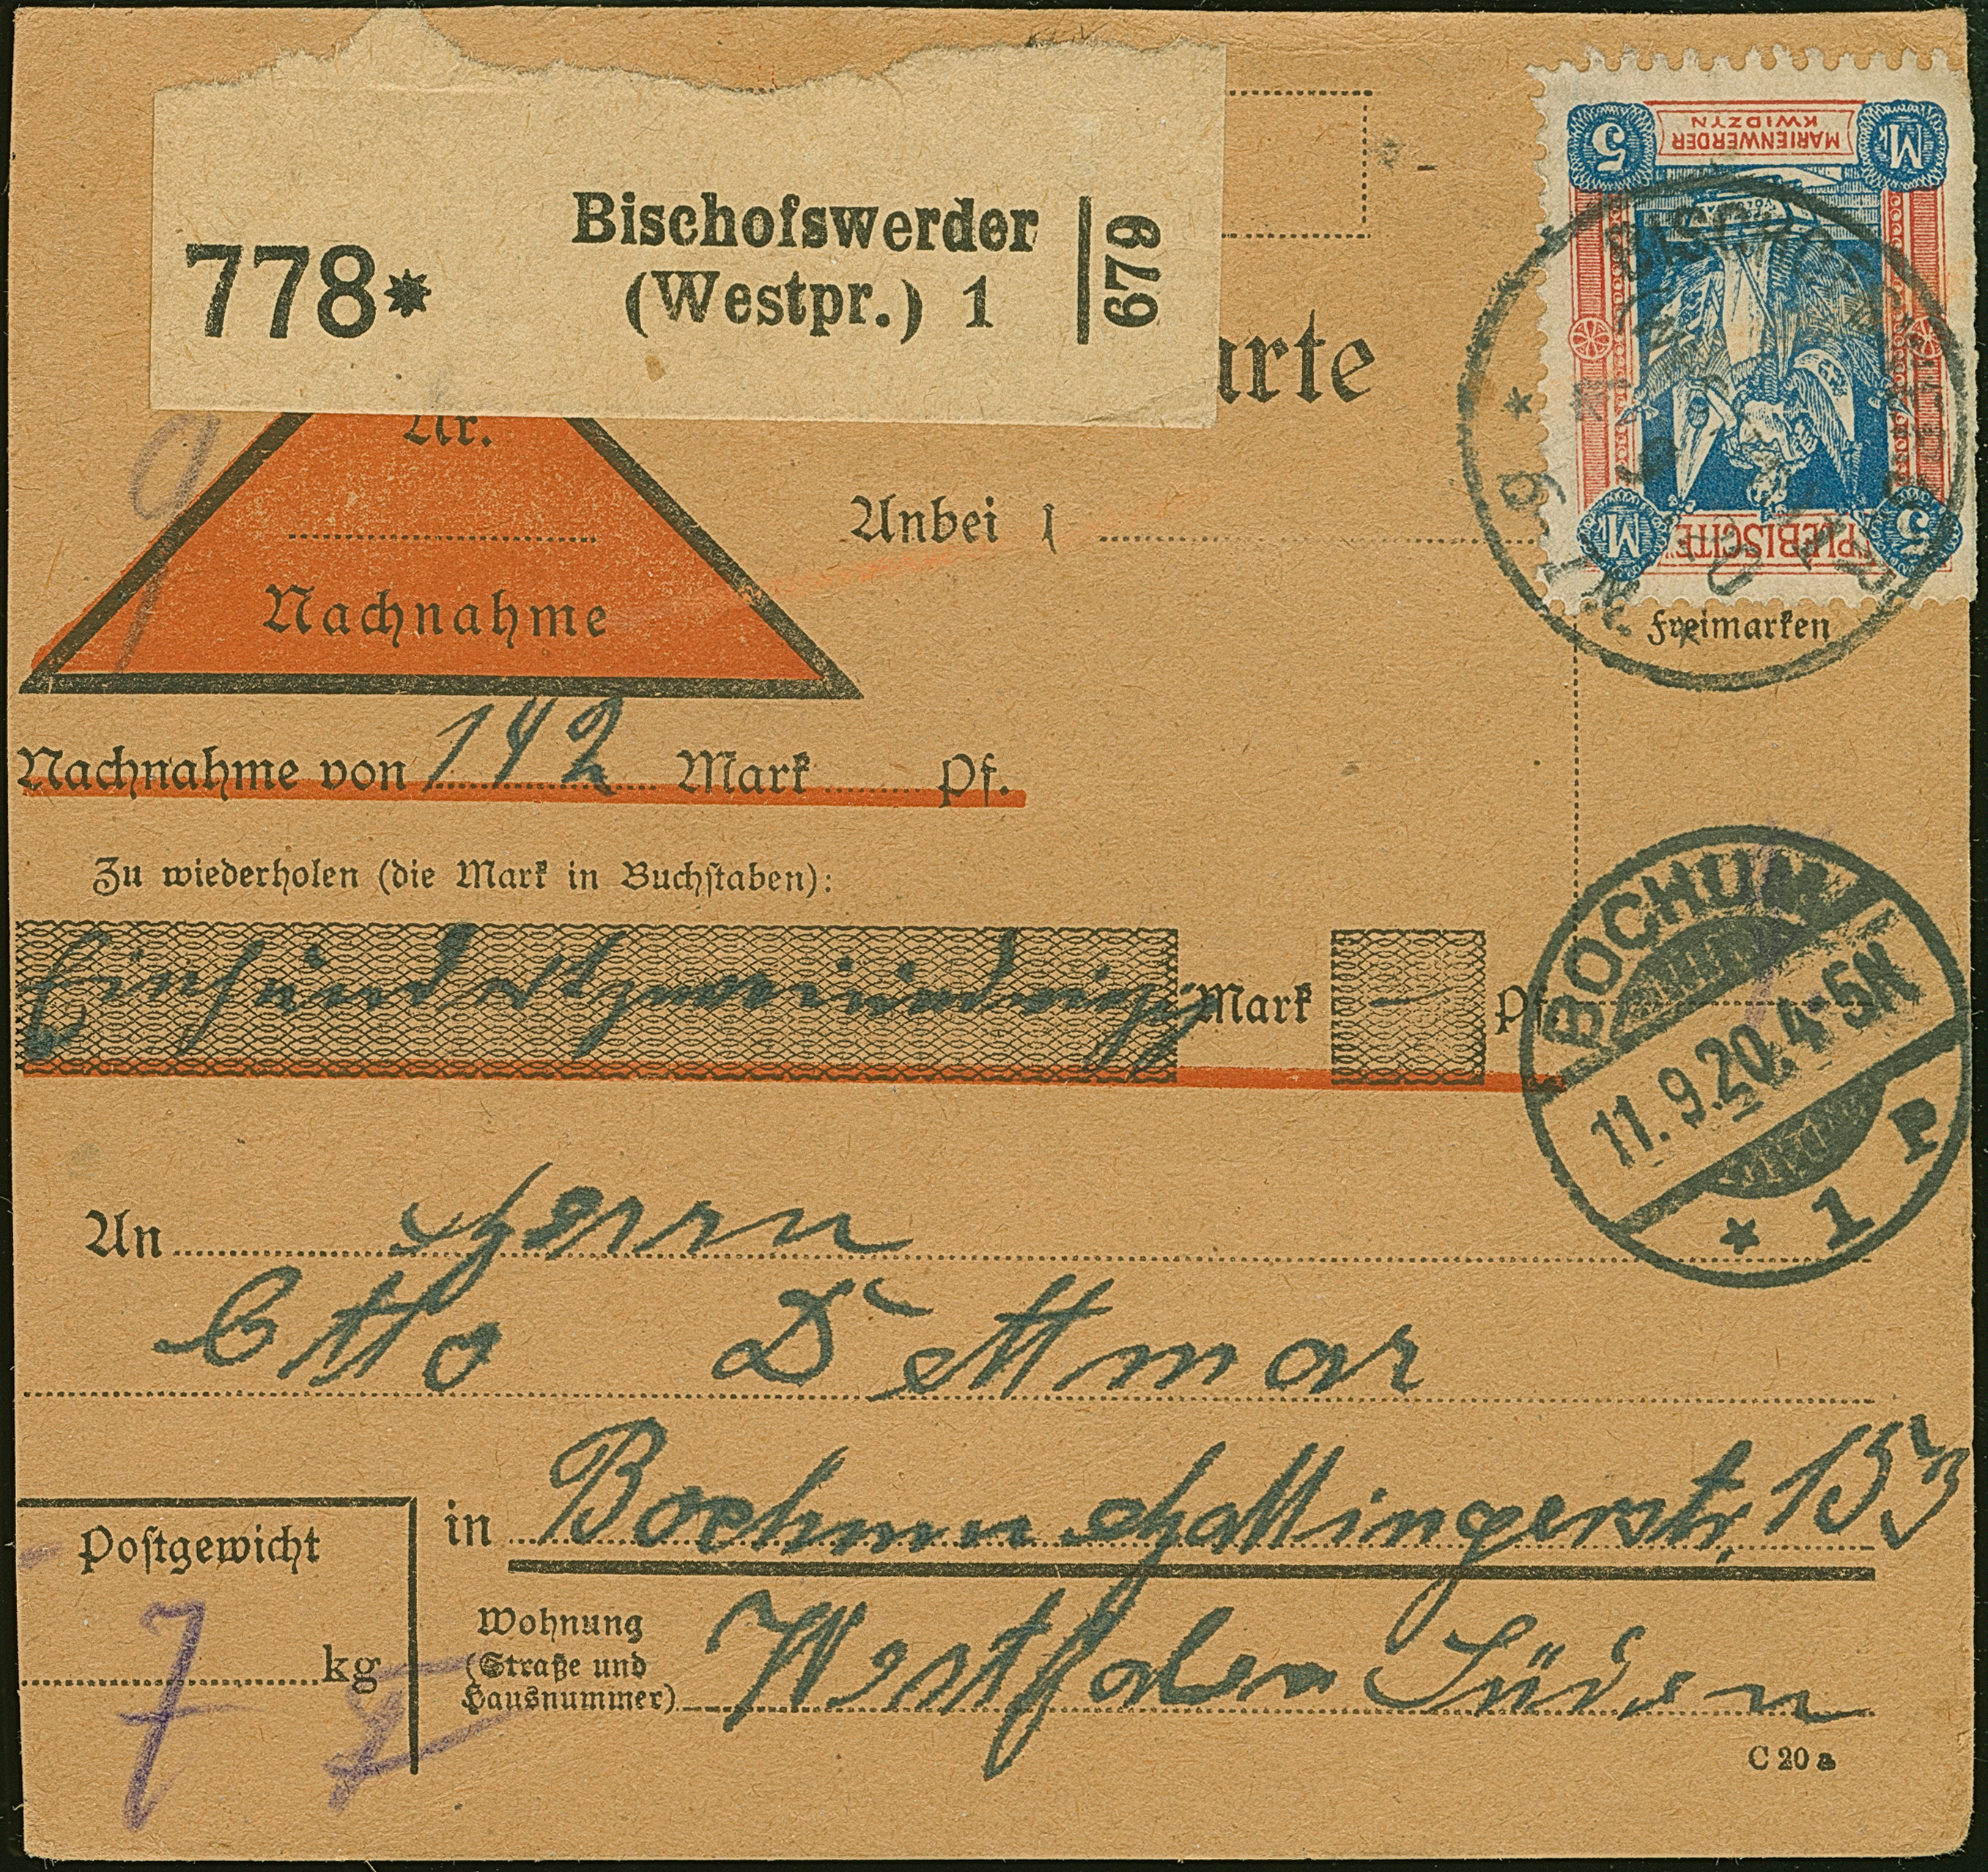 778* Bischofswerder
(Westpr.) 1
679
arte
Nr.
Anbei 1
Nachnahme
5 MARIENWERDER KWIDZYN Mk
Mk PLEBISCITE 5
Freimarken
Nachnahme von 142 Mark Pf.
Zu wiederholen (die Mark in Buchstaben):
Mark — Pf
BOCHUM
11.9.20.4-5N
* 1 P
An Herrn
Otto Dettmar
in Bochum Hattingerstr. 153
Postgewicht
Wohnung
(Straße und
Hausnummer) Westfalen Süden
7 kg
C 20 a